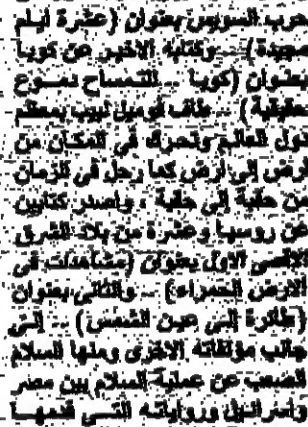 حرب السويس بعنوان (عشرة أيام
مجيدة) .. وكتابه الأخير عن كوبا
بعنوان (كوبا .. التمساح بدموع
حقيقية) .. طاف قوميل لبيب بمعظم
دول العالم وتحرك في المكان من
أرض إلى أرض كما رحل في الزمان
من حقبة إلى حقبة ، وأصدر كتابين
عن روسيا وعشرة من بلاد الشرق
الأقصى الأول بعنوان (مشاهدات في
الأرض الحمراء) .. والثاني بعنوان
(طائرة إلى عين الشمس) .. إلى
جانب مؤلفاته الأخرى ومنها السلام
الصعب عن عملية السلام بين مصر
وإسرائيل ورواياته التي قدمها